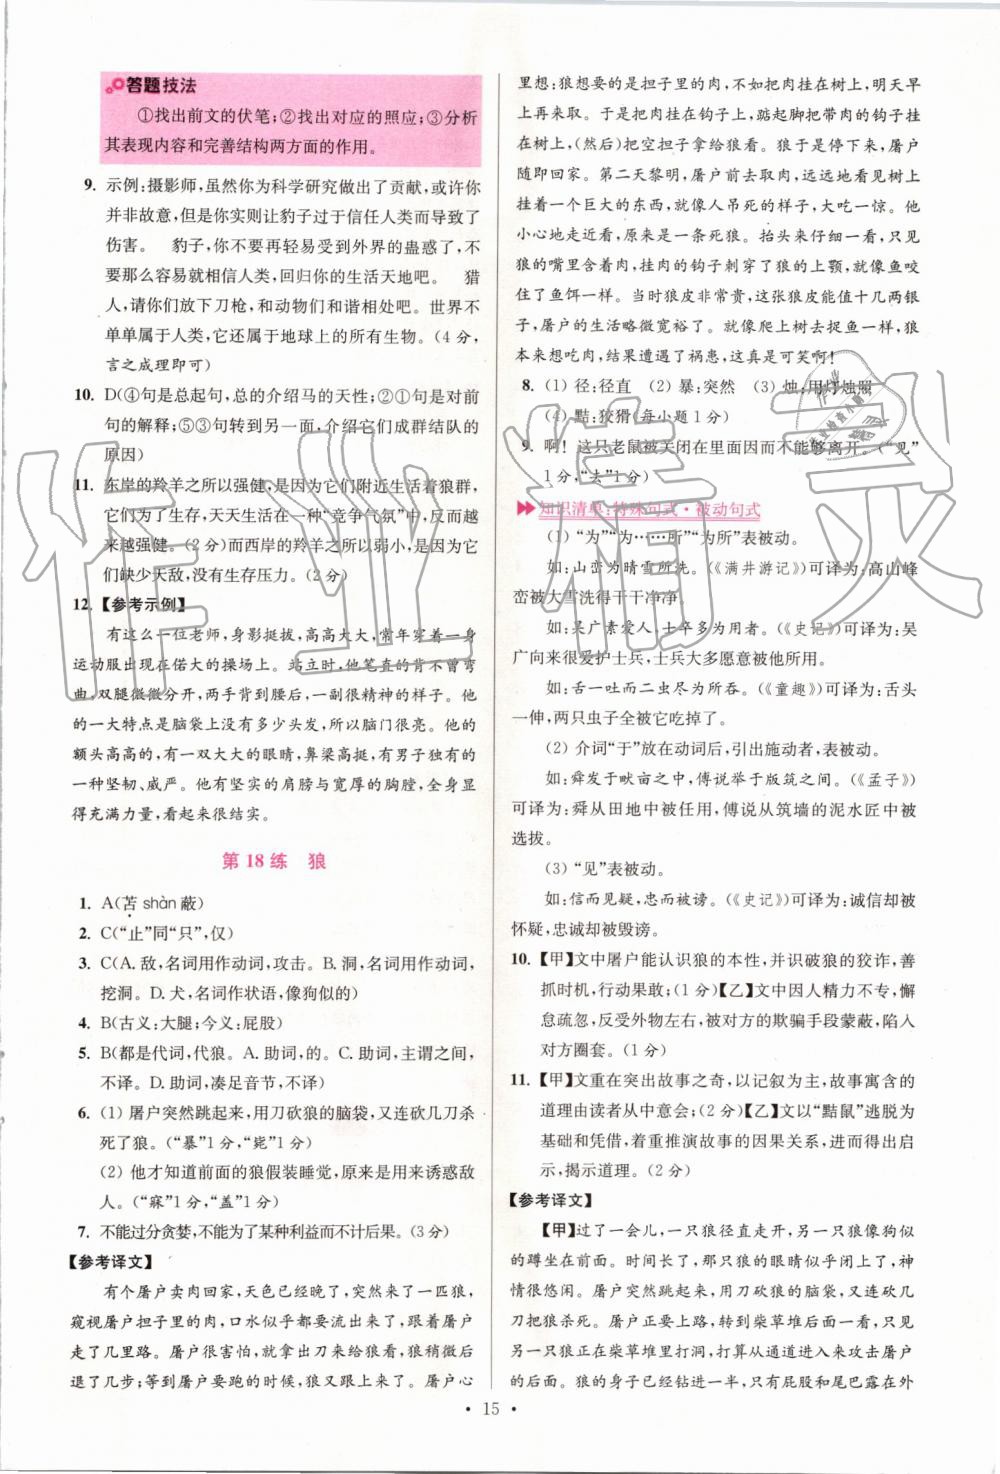 答题技法
①找出前文的伏笔;②找出对应的照应;③分析
其表现内容和完善结构两方面的作用。
9. 示例:摄影师,虽然你为科学研究做出了贡献,或许你
并非故意,但是你实则让豹子过于信任人类而导致了
伤害。 豹子,你不要再轻易受到外界的蛊惑了,不
要那么容易就相信人类,回归你的生活天地吧。 猎
人,请你们放下刀枪,和动物们和谐相处吧。世界不
单单属于人类,它还属于地球上的所有生物。(4分,
言之成理即可)
10. D(④句是总起句,总的介绍马的天性;②①句是对前
句的解释;⑤③句转到另一面,介绍它们成群结队的
原因)
11. 东岸的羚羊之所以强健,是因为它们附近生活着狼群,
它们为了生存,天天生活在一种“竞争气氛”中,因而越
来越强健。(2分)而西岸的羚羊之所以弱小,是因为它
们缺少天敌,没有生存压力。(2分)
12.【参考示例】
有这么一位老师,身影挺拔,高高大大,常年穿着一身
运动服出现在偌大的操场上。站立时,他笔直的背不曾弯
曲,双腿微微分开,两手背到腰后,一副很精神的样子。他
的一大特点是脑袋上没有多少头发,所以脑门很亮。他的
额头高高的,有一双大大的眼睛,鼻梁高挺,有男子独有的
一种坚韧、威严。他有坚实的肩膀与宽厚的胸膛,全身显
得充满力量,看起来很结实。
第18练 狼
1. A(苫 shàn 蔽)
2. C(“止”同“只”,仅)
3. C(A.敌,名词用作动词,攻击。B.洞,名词用作动词,
挖洞。D.犬,名词作状语,像狗似的)
4. B(古义:大腿;今义:屁股)
5. B(都是代词,代狼。A.助词,的。C.助词,主谓之间,
不译。D.助词,凑足音节,不译)
6. (1) 屠户突然跳起来,用刀砍狼的脑袋,又连砍几刀杀
死了狼。(“暴”1分,“毙”1分)
(2) 他才知道前面的狼假装睡觉,原来是用来诱惑敌
人。(“寐”1分,“盖”1分)
7. 不能过分贪婪,不能为了某种利益而不计后果。(3分)
【参考译文】
有个屠户卖肉回家,天色已经晚了,突然来了一匹狼,
窥视屠户担子里的肉,口水似乎都要流出来了,跟着屠户
走了几里路。屠户很害怕,就拿出刀来给狼看,狼稍后
退了几步;等到屠户要跑的时候,狼又跟上来了。屠户心
里想:狼想要的是担子里的肉,不如把肉挂在树上,明天早
上再来取。于是,屠户把肉挂在钩子上,踮起脚把带肉的钩子挂
在树上,(然后)把空担子拿给狼看。于是狼停下来,屠户
随即回家。第二天黎明,屠户前去取肉,远远地看见树上
挂着一个巨大的东西,就像人吊死的样子,大吃一惊。他
小心地走近看,原来是一条死狼。抬头来仔细一看,只见
狼的嘴里含着肉,挂肉的钩子刺穿了狼的上颚,就像鱼咬
住了鱼饵一样。当时狼皮非常贵,这张狼皮能值十几两银
子,屠户的生活略微宽裕了。就像爬上树去捉鱼一样,狼
本来想吃肉,结果遭遇了祸患,这真是可笑啊!
8. (1) 径:径直 (2) 暴:突然 (3) 烛:用灯烛照
(4) 黠:狡猾(每小题1分)
9. 啊!这只老鼠被关闭在里面因而不能够离开。(“见”
1分,“去”1分)
知识清单:特殊句式·被动句式
(1) “为”“为……所”“为所”表被动。
如:山峦为晴雪所洗。(《满井游记》)可译为:高山峰
峦被大雪洗得干干净净。
如:吴广素爱人,士卒多为用者。(《史记》)可译为:吴
广向来很爱护士兵,士兵大多愿意被他所用。
如:舌一吐而二虫尽为所吞。(《童趣》)可译为:舌头
一伸,两只虫子全被它吃掉了。
(2) 介词“于”放在动词后,引出施动者,表被动。
如:舜发于畎亩之中,傅说举于版筑之间。(《孟子》)
可译为:舜从田地中被任用,傅说从筑墙的泥水匠中被
选拔。
(3) “见”表被动。
如:信而见疑,忠而被谤。(《史记》)可译为:诚信却被
怀疑,忠诚却被毁谤。
10.【甲】文中屠户能认识狼的本性,并识破狼的狡诈,善
抓时机,行动果敢;(1分)【乙】文中因人精力不专,懈
怠疏忽,反受外物左右,被对方的欺骗手段蒙蔽,陷入
对方圈套。(1分)
11.【甲】文重在突出故事之奇,以记叙为主,故事寓含的
道理由读者从中意会;(2分)【乙】文以“黠鼠”逃脱为
基础和凭借,着重推演故事的因果关系,进而得出启
示,揭示道理。(2分)
【参考译文】
【甲】过了一会儿,一只狼径直走开,另一只狼像狗似
的蹲坐在前面。时间长了,那只狼的眼睛似乎闭上了,神
情很悠闲。屠户突然跳起来,用刀砍狼的脑袋,又连砍几
刀把狼杀死。屠户正要上路,转到柴草堆后面一看,发现
另一只狼正在柴草堆里打洞,打算从通道进入来攻击屠户
的后面。狼的身子已经钻进一半,只有屁股和尾巴露在外
·15·
作业精灵